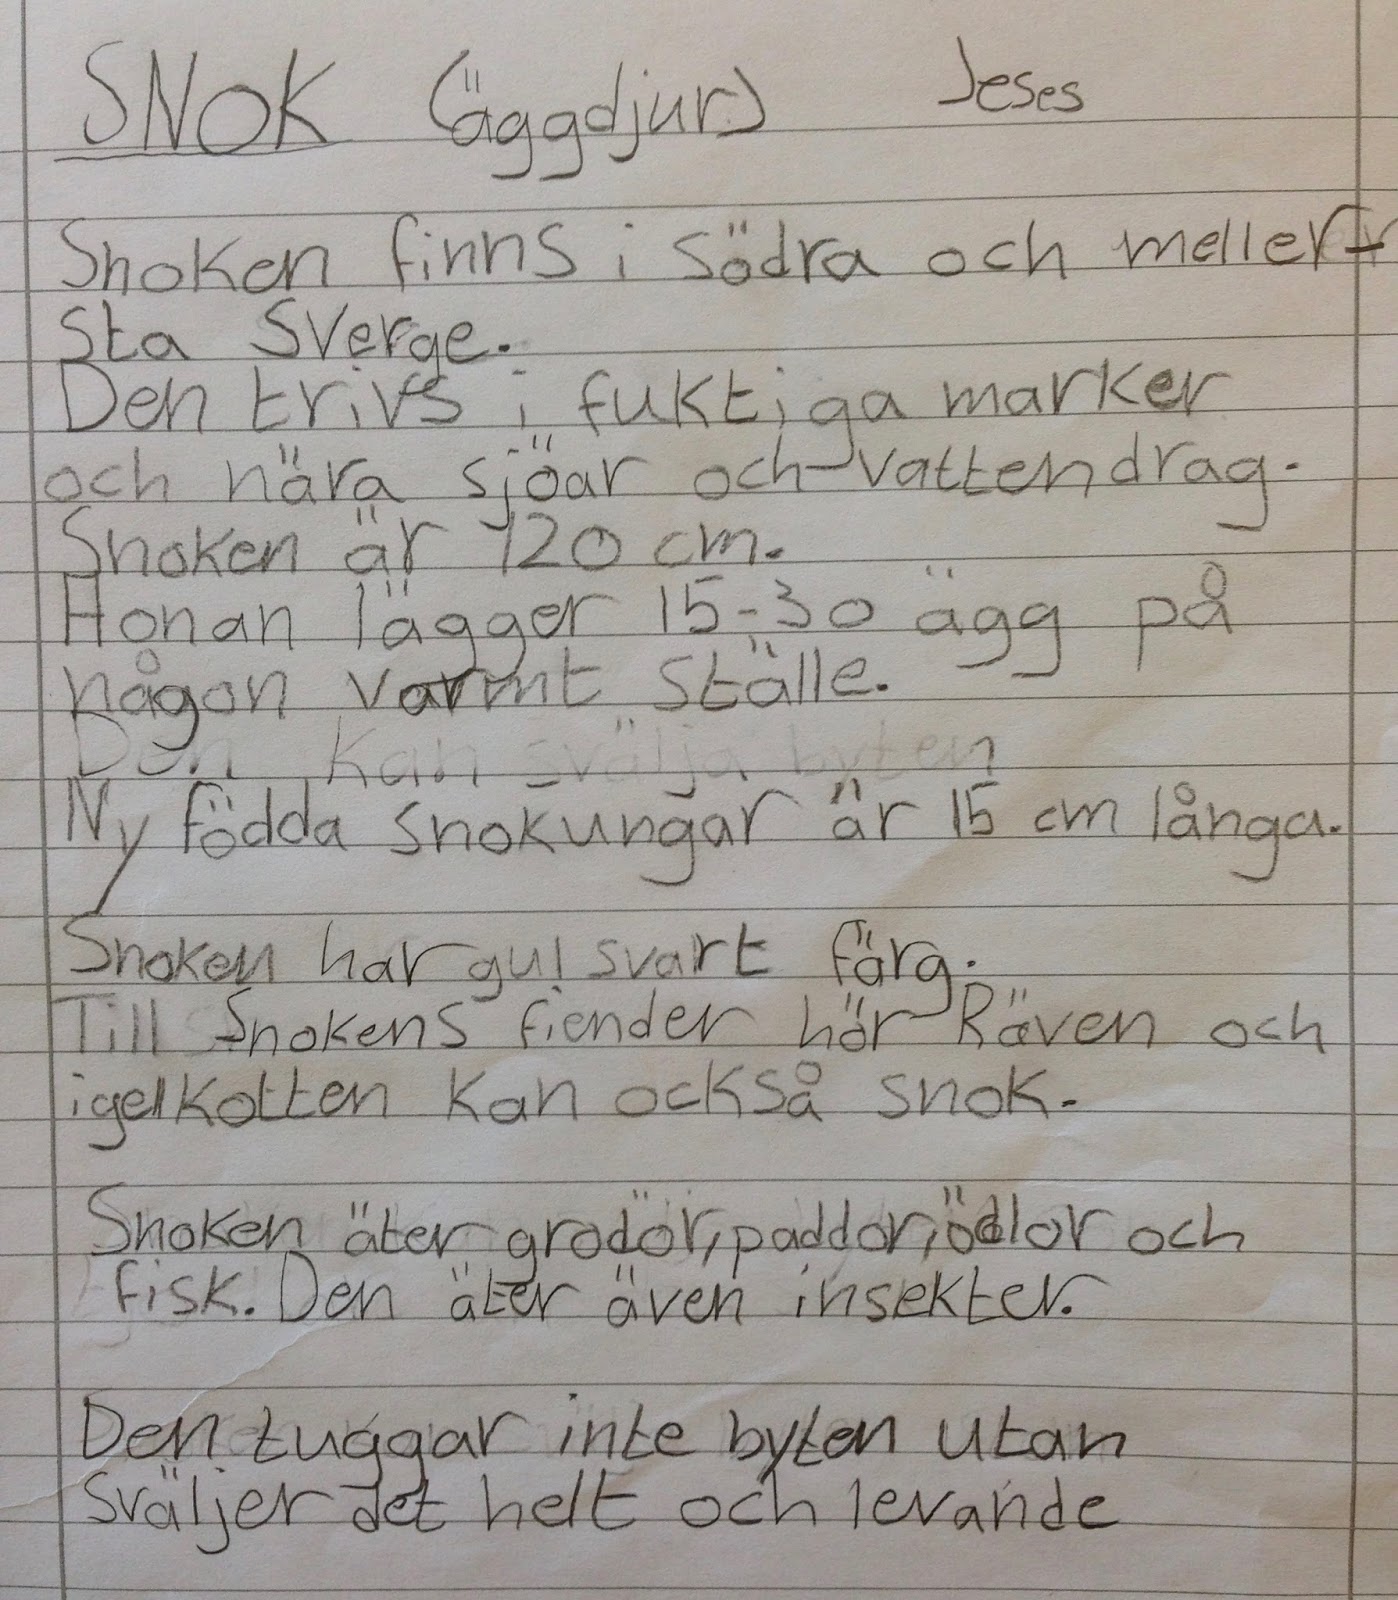 SNOK (äggdjur) Jeses
Snoken finns i södra och meller-
sta Sverge.
Den trivs i fuktiga marker
och nära sjöar och vattendrag.
Snoken är 120 cm.
Honan lägger 15-30 ägg på
någon varmt ställe.
Den kan svälja byten
Ny födda snokungar är 15 cm långa.
Snoken har gul svart färg.
Till Snokens fiender hör Räven och
igelkotten kan också snok.
Snoken äter grodör, paddor, ödlor och
fisk. Den äter även insekter.
Den tuggar inte byten utan
sväljer det helt och levande